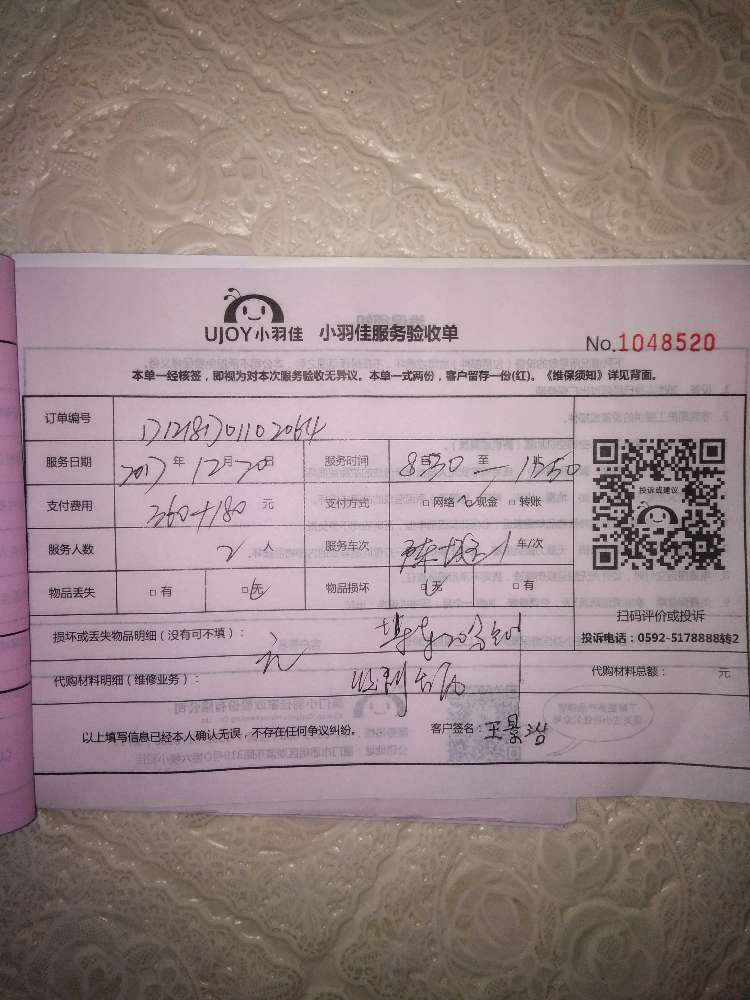 UJOY小羽佳 小羽佳服务验收单
No.1048520
本单一经核签，即视为对本次服务验收无异议。本单一式两份，客户留存一份(红)。《维保须知》详见背面。
订单编号
服务日期 2017年12月20日 服务时间 8:30至11:50
支付费用 360+180元 支付方式 □网络 □现金 □转账
服务人数 2人 服务车次 1车/次
物品丢失 □有 □无 物品损坏 □无 □有
投诉或建议
扫码评价或投诉
投诉电话：0592-5178888转2
损坏或丢失物品明细（没有可不填）：
代购材料明细（维修业务）：
代购材料总额： 元
以上填写信息已经本人确认无误，不存在任何争议纠纷。 客户签名：王景浩